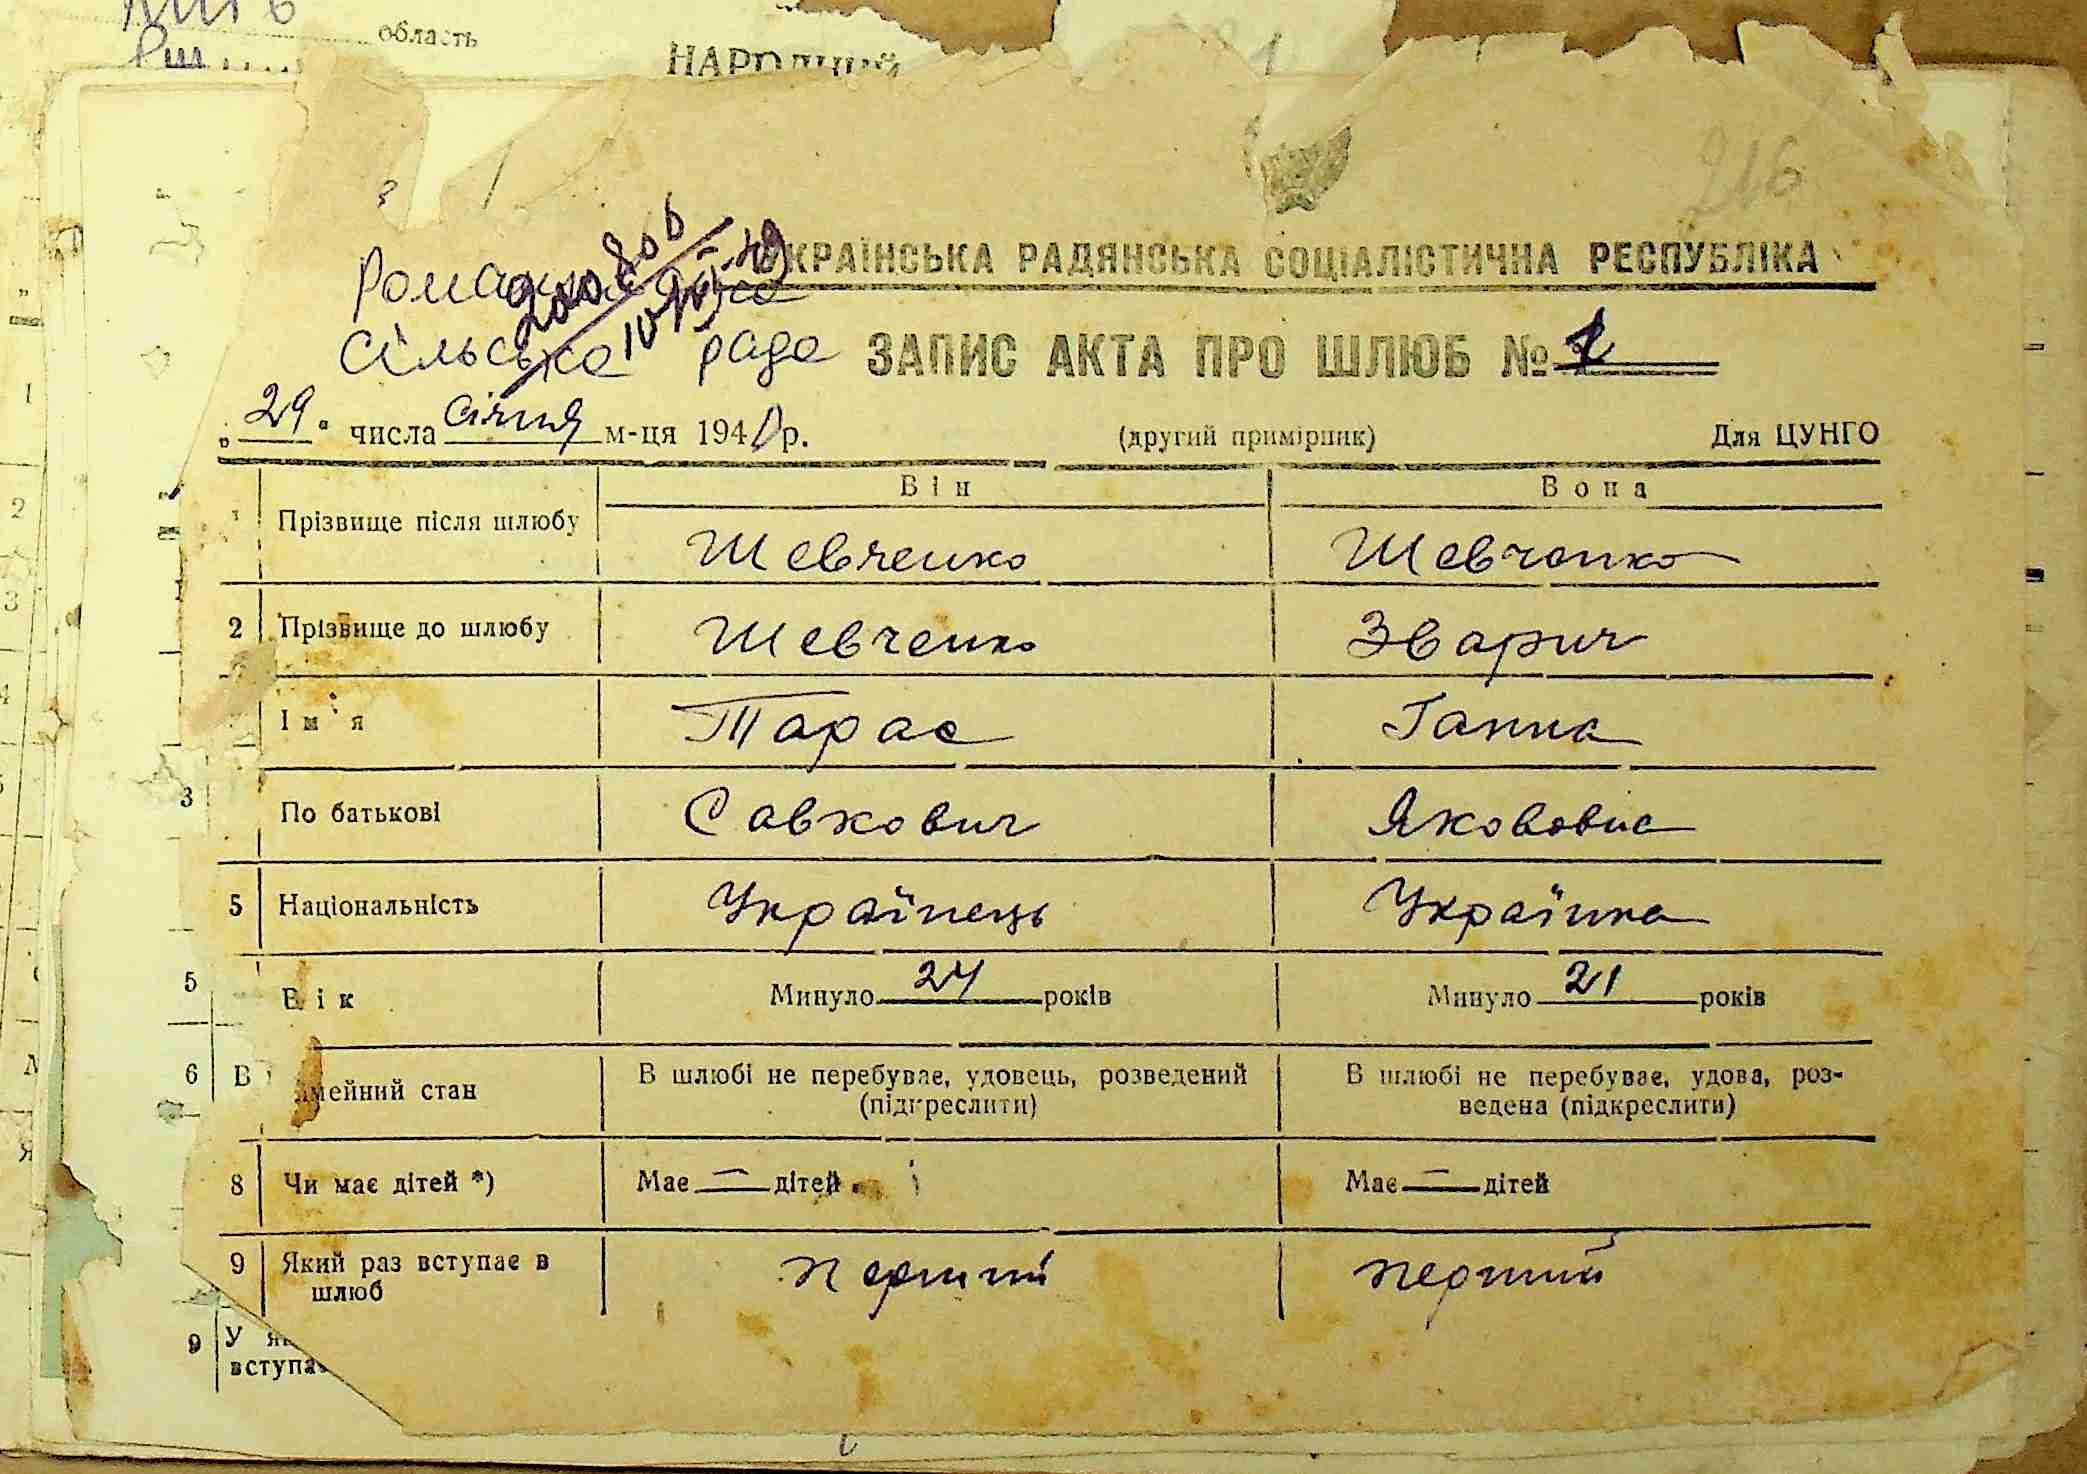 область
НАРОДНИЙ
216
УКРАЇНСЬКА РАДЯНСЬКА СОЦІАЛІСТИЧНА РЕСПУБЛІКА
сільська рада
ЗАПИС АКТА ПРО ШЛЮБ №
„29“ числа січня м-ця 194 р.
(другий примірник)
Для ЦУНГО
Він Вона
Прізвище після шлюбу Шевченко Шевченко
2 Прізвище до шлюбу Шевченко Зварич
Ім'я Тарас Ганна
3
По батькові Савкович Якововна
5 Національність Українець Українка
5
Вік Минуло 24 років Минуло 21 років
6 В
мейний стан В шлюбі не перебуває, удовець, розведений (підкреслити) В шлюбі не перебуває, удова, роз-
ведена (підкреслити)
8 Чи має дітей *) Має — дітей Має — дітей
9 Який раз вступає в
шлюб перший перший
9 У як
вступає